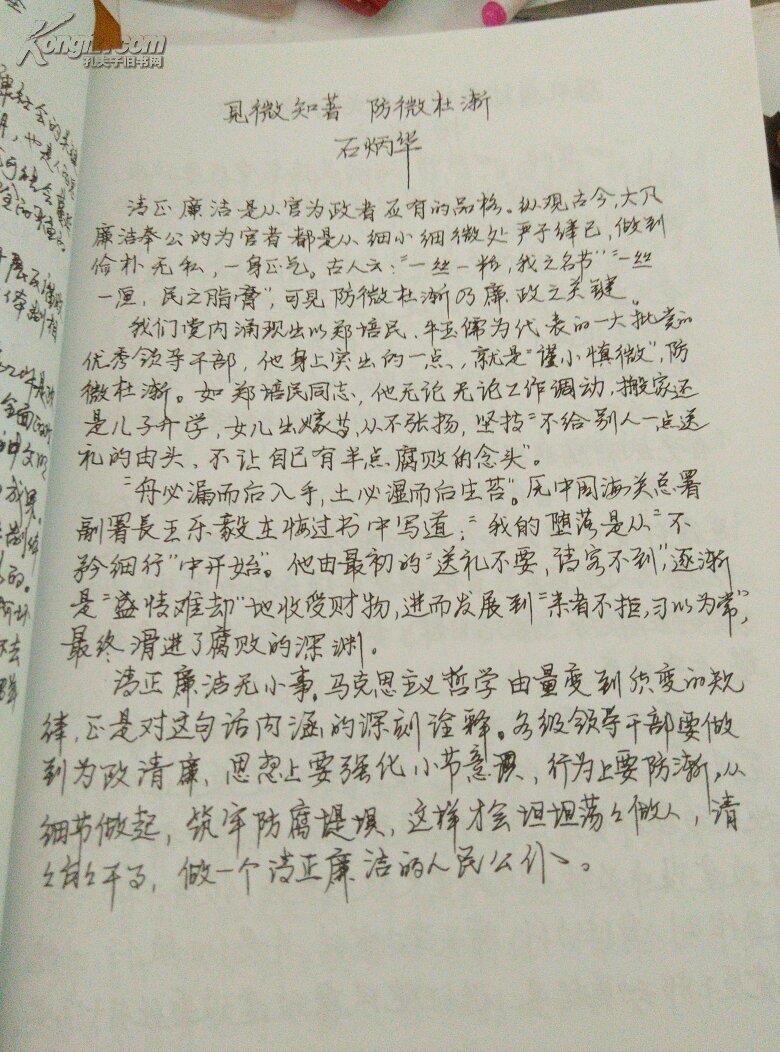 Kongfz.com
孔夫子旧书网
见微知著 防微杜渐
石炳华
清正廉洁是从官为政者应有的品格。纵观古今,大凡
廉洁奉公的为官者都是从细小细微处严于律己,做到
俭朴无私,一身正气。古人云:“一丝一粒,我之名节”“一丝
一厘,民之脂膏”,可见防微杜渐乃廉政之关键。
我们党内涌现出以郑培民、牛玉儒为代表的一大批党的
优秀领导干部,他身上突出的一点,就是“谨小慎微”,防
微杜渐。如郑培民同志,他无论无论工作调动,搬家还
是儿子升学,女儿出嫁等,从不张扬,坚持“不给别人一点送
礼的由头,不让自己有半点腐败的念头”。
“舟必漏而后入手,土必湿而后生苔”。原中国海关总署
副署長王乐毅在悔过书中写道:“我的堕落是从“不
矜细行”中开始”。他由最初的“送礼不要,请客不到”,逐渐
是“盛情难却”地收受财物,进而发展到“来者不拒,习以为常”,
最终滑进了腐败的深渊。
清正廉洁无小事。马克思主义哲学由量变到质变的规
律,正是对这句话内涵的深刻诠释。各级领导干部要做
到为政清廉,思想上要强化小节意识,行为上要防渐,从
细节做起,筑牢防腐堤坝,这样才会坦坦荡々做人,清
々白々干事,做一个清正廉洁的人民公仆。